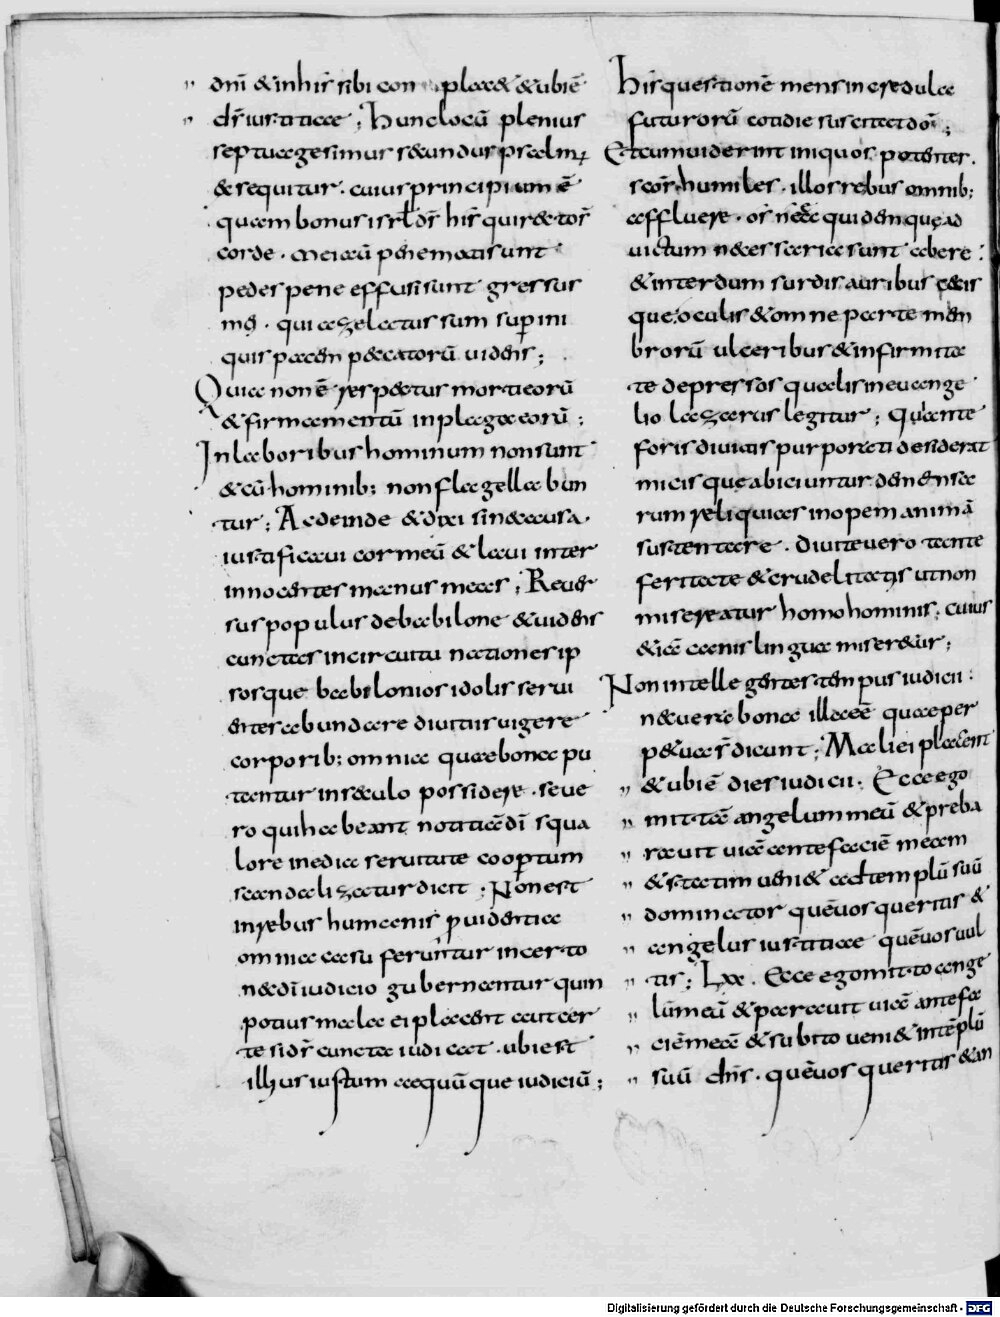 dnī & inhis sibi con placet & ubi ē
ds iustitiae ; Hunc locū plenius
septuagesimus secundus psalmꝰ
& sequitur . cuius principium ē
quam bonus isrl ds his qui recto s̄
corde . mei autē pene moti sunt
pedes pene effusi sunt gressus
mei . quia zelatus sum sup ini
quis pacem peccatorū videns ;
Quia non ē respectus morti eorū
& firmamentū in plaga eorū ;
In laboribus hominum non sunt
& cū hominib; non flagellabun
tur ; Ac deinde & dixi sine causa .
iustificavi cor meū & lavi inter
innocentes manus meas ; Rever
sus populus de babilone & videns
cunctas in circuitu nationes ip
sosque babilonios idolis servi
entes abundare divitiis vigere
corporib; omnia quae bona pu
tantur in saeculo possidere . se ve
ro qui habeant notitiā dī squa
lore inedia servitute coopertum
scandalizatur dicit ; Non est
in rebus humanis providentia
omnia casu feruntur incerto
nec dī iudicio gubernantur quin
potius mala ei placent aut cer
te si ds cuncta iudicat . ubi est
illius iustum aequūque iudiciū ;
His questionē mens incredula
futurorū cotidie suscitat dō ;
Et cum viderint iniquos potentes .
scōs humiles . illos rebus omnib;
affluere . os nec ea quidem que ad
victum necessaria sunt abere .
& interdum surdis auribus cecis
que oculis & omne parte mem
brorū ulceribus & infirmita
te depressos qualis in evange
lio lazarus legitur ; Qui ante
foris divitis purporati desiderat
micis que abiciuntur de mensa
rum reliquias inopem animā
sustentare . divite vero tante
feritate & crudelitatis ut non
misereatur homo hominis . cuius
& iā canis lingua miseretur ;
Non intellegentes tempus iudicii .
nec vera bona illa eē quae per
petua s̄ dicunt ; Mali ei placent
& ubi ē dies iudicii . Ecce ego
mittā angelum meū & preba
ravit viā ante faciē meam
& statim veniet ad templū suū
dominator quē vos queritis &
angelus iustitiae quē vos vul
tis ; Lxx . Ecce ego mitto ange
lū meū & paravit viā ante fa
ciē meā & subito veniet in tēplū
suū dns . quē vos queritis & an
Digitalisierung gefördert durch die Deutsche Forschungsgemeinschaft - DFG